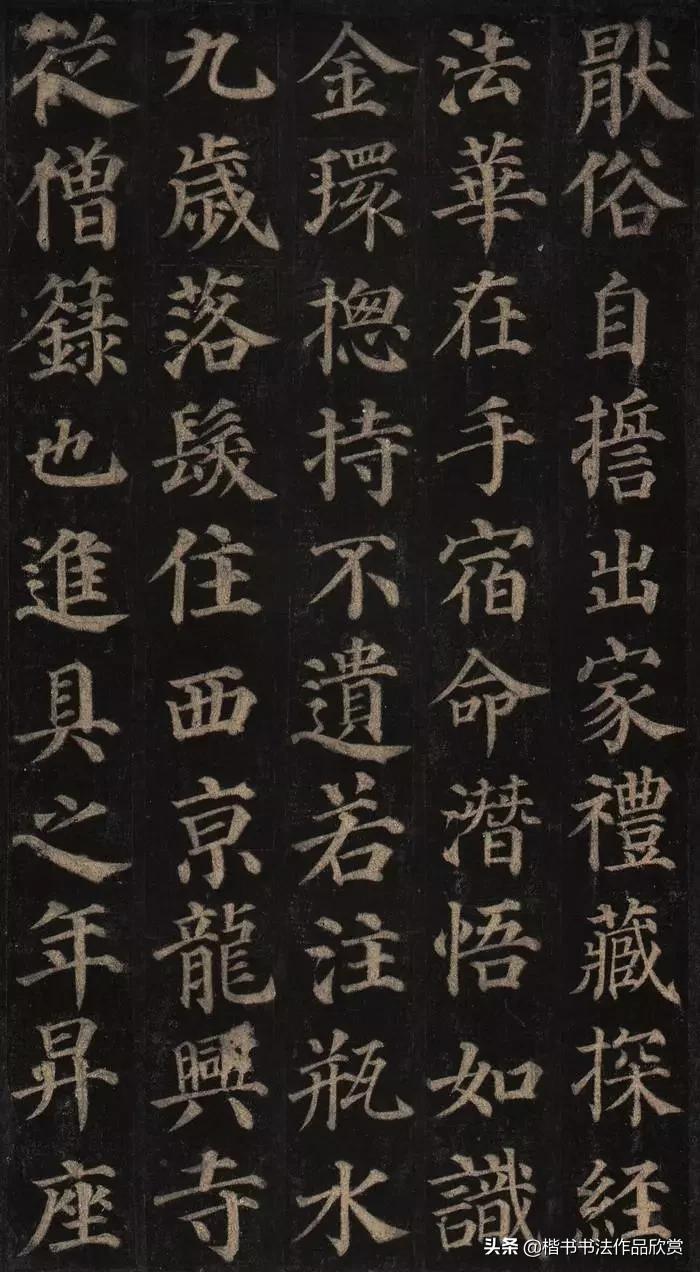 猒俗自擔出家禮藏探經
法華在手宿命潛悟如識
金環捴持不遺若注瓶水
九歲落髮住西京龍興寺
從僧籙也進具之年昇座
头条 @楷书书法作品欣赏